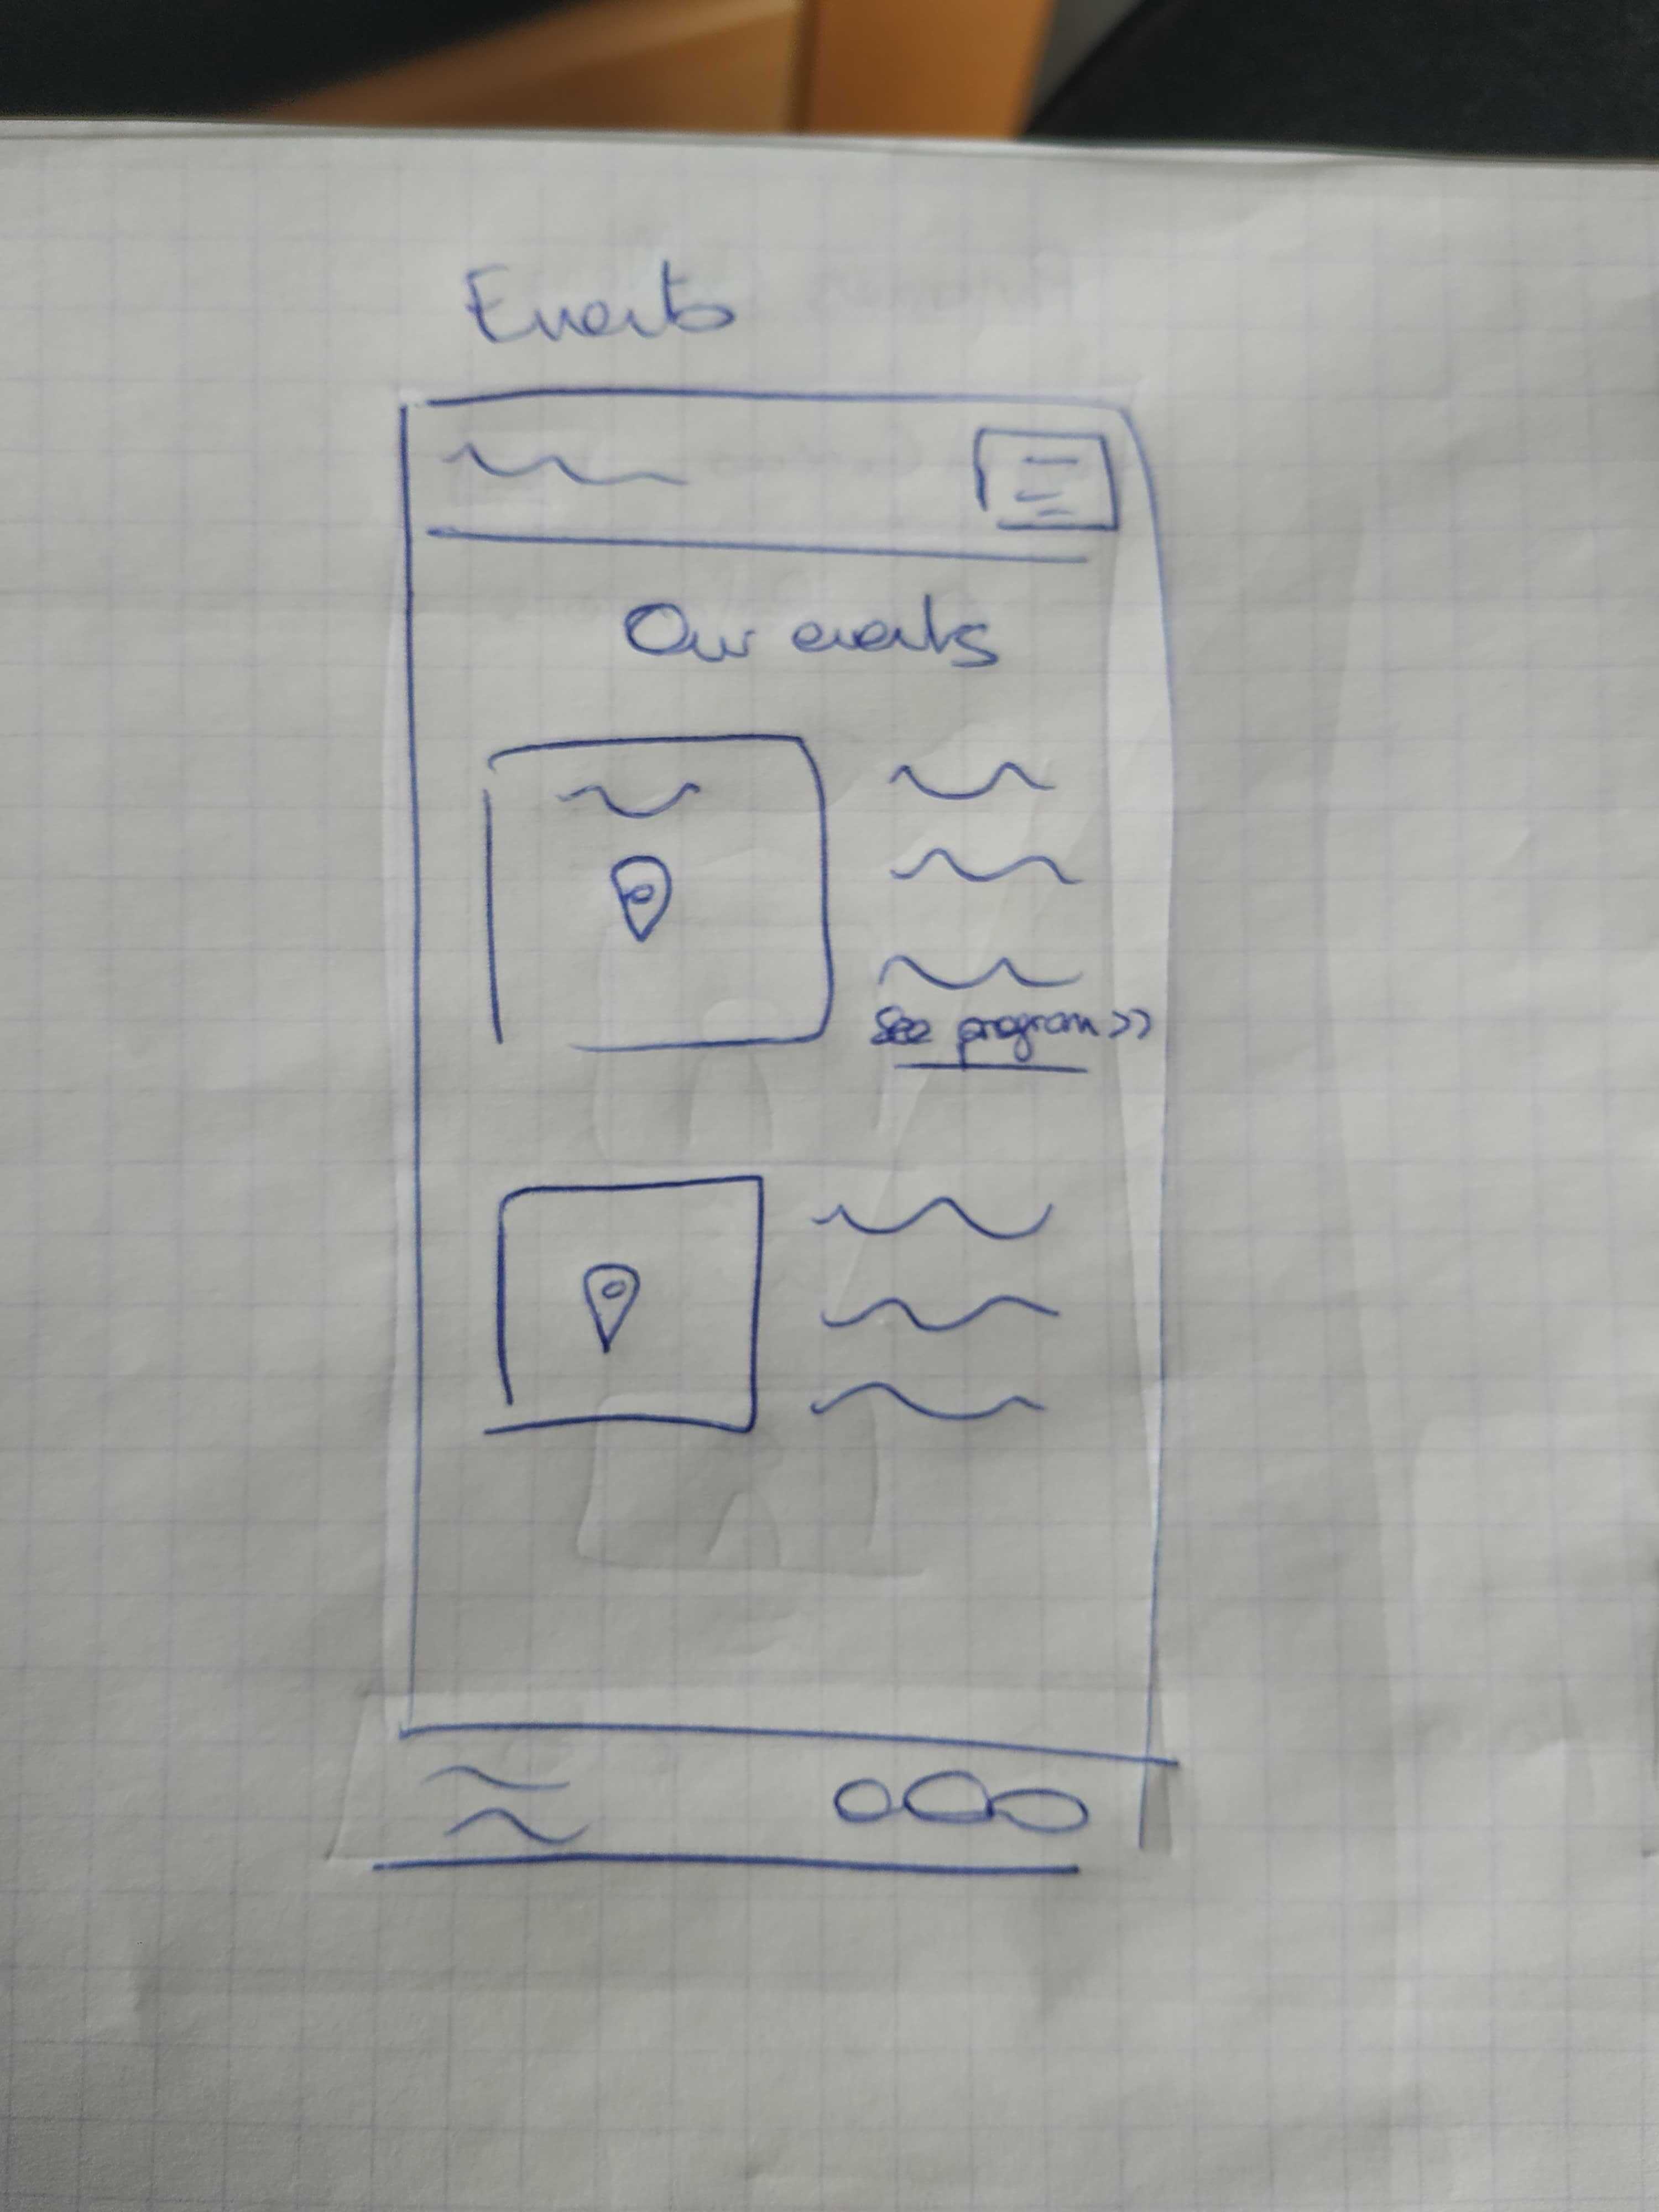 Events
Our events
See program >>